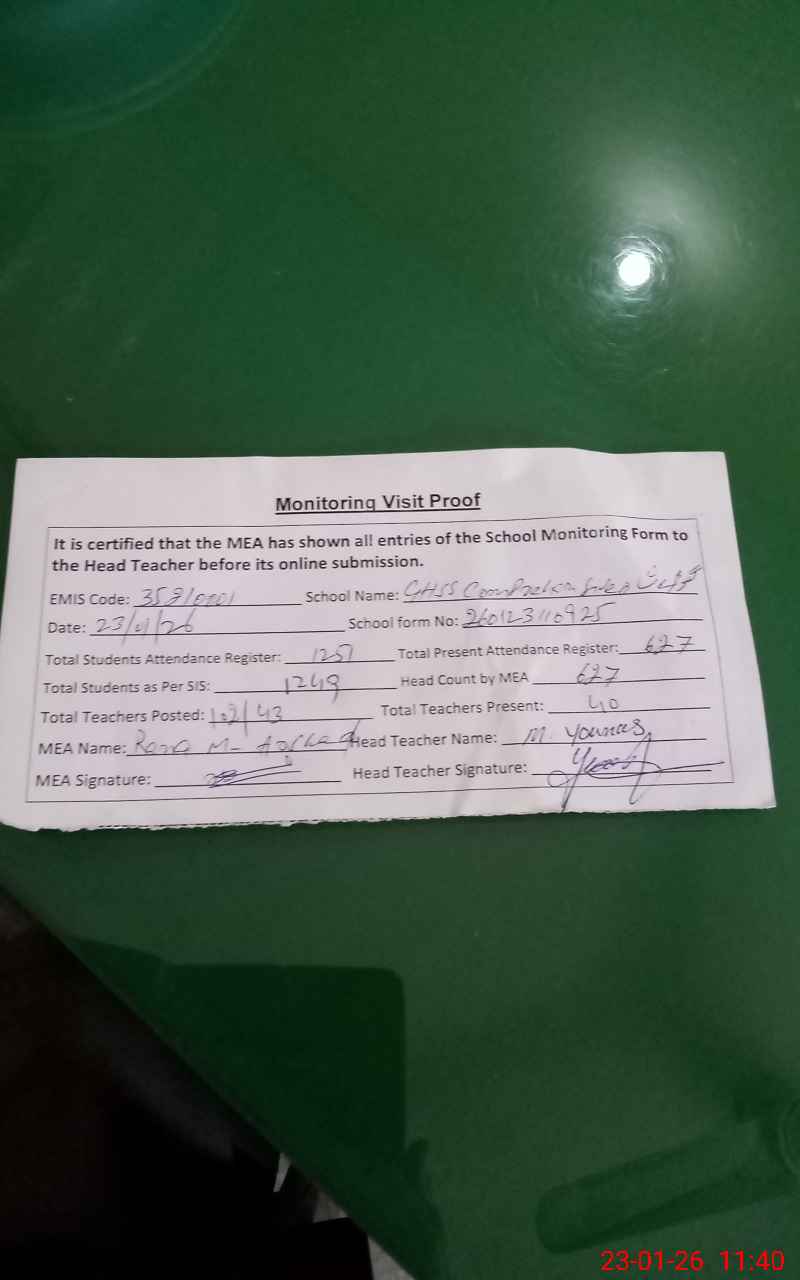 Monitoring Visit Proof
It is certified that the MEA has shown all entries of the School Monitoring Form to
the Head Teacher before its online submission.
EMIS Code: School Name: GHSS
Date: 23/01/26 School form No: 260123110925
Total Students Attendance Register: 1251 Total Present Attendance Register: 627
Total Students as Per SIS: 1249 Head Count by MEA 627
Total Teachers Posted: 102/43 Total Teachers Present: 40
MEA Name: Rana M- Head Teacher Name: M. Younas
MEA Signature: Head Teacher Signature:
23-01-26 11:40